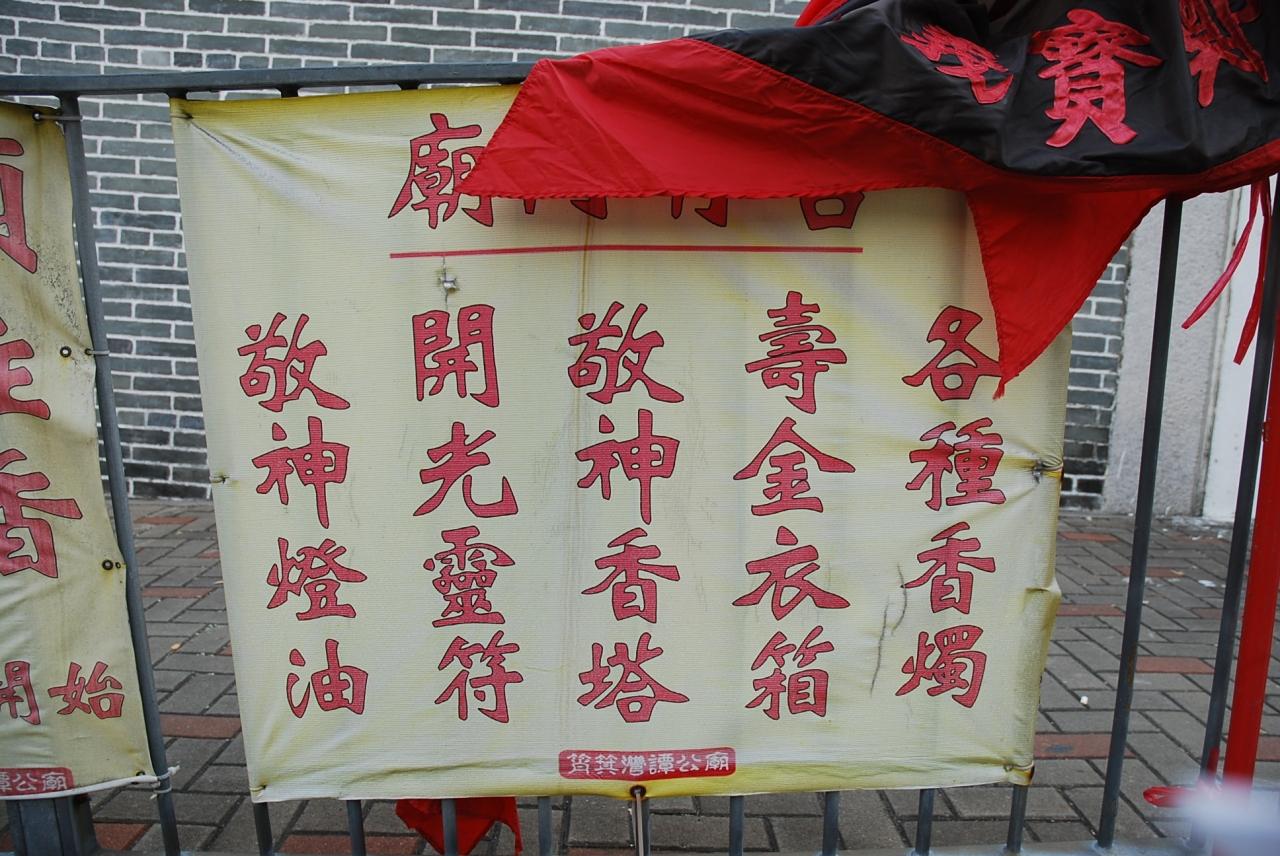 廟內有售
各種香燭
壽金衣箱
敬神香塔
開光靈符
敬神燈油
筲箕灣譚公廟
寶
香
開始
譚公廟